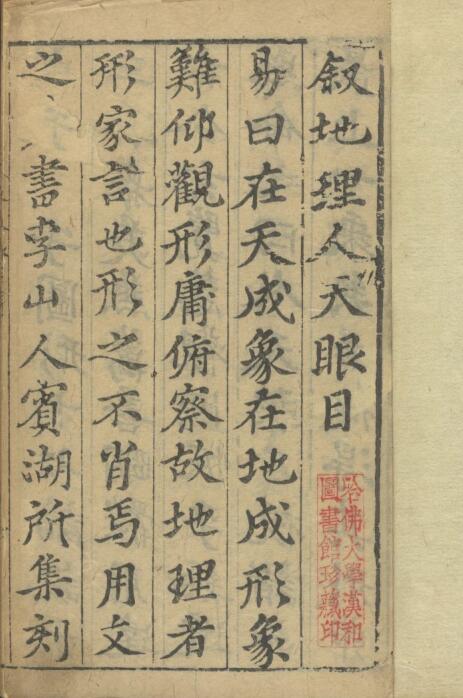 叙地理人天眼目
易曰在天成象在地成形象
難仰觀形庸俯察故地理者
形家言也形之不肖焉用文
之書李山人賓湖所集刻
哈佛大學漢和
圖書館珍藏印